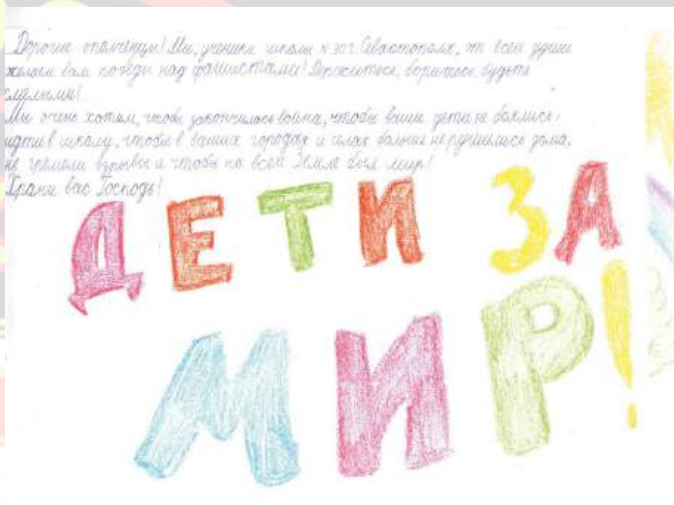 Дорогие ополченцы! Мы, ученики школы №30 г. Севастополя, от всей души
желаем вам победы над фашистами! Держитесь, боритесь, будьте
смелыми!
Мы очень хотим, чтобы закончилась война, чтобы ваши дети не боялись
идти в школу, чтобы в ваших городах и селах больше не рушились дома,
не гремели взрывы и чтобы на всей Земле был мир!
Храни вас Господь!
ДЕТИ ЗА
МИР!